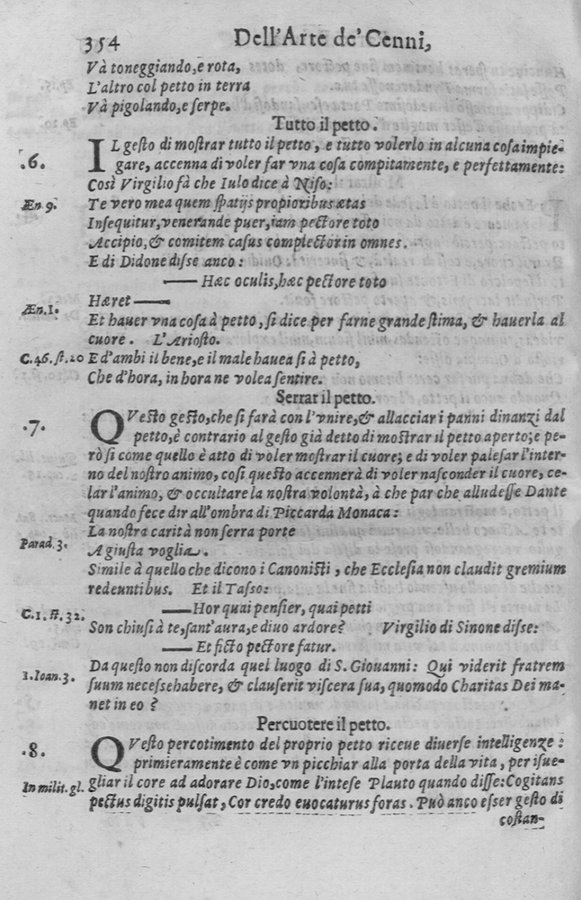 354 Dell'Arte de' Cenni,
Và toneggiando, e rota,
L'altro col petto in terra
Và pigolando, e serpe.
Tutto il petto.
.6. IL gesto di mostrar tutto il petto, e tutto volerlo in alcuna cosa impie-
gare, accenna di voler far vna cosa compitamente, e perfettamente:
Così Virgilio fà che Iulo dice à Niso:
Æn 9. Te vero mea quem spatijs propioribus ætas
Insequitur, venerande puer, iam pectore toto
Accipio, & comitem casus complector in omnes.
E di Didone disse anco:
—— Hæc oculis, hæc pectore toto
Æn. 1. Hæret ——
Et hauer vna cosa à petto, si dice per farne grande stima, & hauerla al
cuore. L'Ariosto.
C. 46. st. 20 E d'ambi il bene, e il male hauea sì à petto,
Che d'hora, in hora ne volea sentire.
Serrar il petto.
.7. QVesto gesto, che si farà con l'vnire, & allacciar i panni dinanzi dal
petto, è contrario al gesto già detto di mostrar il petto aperto; e pe-
rò si come quello è atto di voler mostrar il cuore; e di voler palesar l'inter-
no del nostro animo, cosi questo accennerà di voler nasconder il cuore, ce-
lar l'animo, & occultare la nostra volontà, à che par che alludesse Dante
quando fece dir all'ombra di Piccarda Monaca:
La nostra carità non serra porte
Parad. 3. A giusta voglia.
Simile à quello che dicono i Canonisti, che Ecclesia non claudit gremium
redeuntibus. Et il Tasso:
C. 1. st. 32. —— Hor quai pensier, quai petti
Son chiusi à te, sant'aura, e diuo ardore? Virgilio di Sinone disse:
—— Et ficto pectore fatur.
1. Ioan. 3. Da questo non discorda quel luogo di S. Giouanni: Qui viderit fratrem
suum necesse habere, & clauserit viscera sua, quomodo Charitas Dei ma-
net in eo?
Percuotere il petto.
.8. QVesto percotimento del proprio petto riceue diuerse intelligenze:
primieramente è come vn picchiar alla porta della vita, per isue-
In milit. gl. gliar il core ad adorare Dio, come l'intese Plauto quando disse: Cogitans
pectus digitis pulsat, Cor credo euocaturus foras. Può anco esser gesto di
costan-